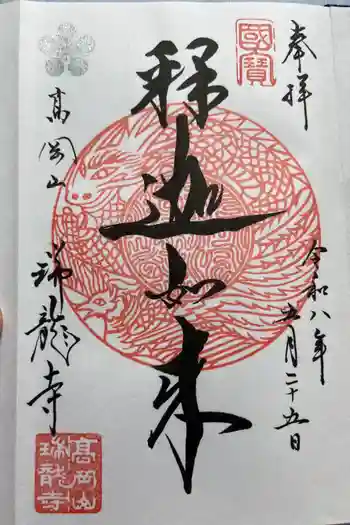 奉拝
令和八年
五月二十五日
國寶
釋迦如来
高岡山
瑞龍寺
高岡山
瑞龍寺